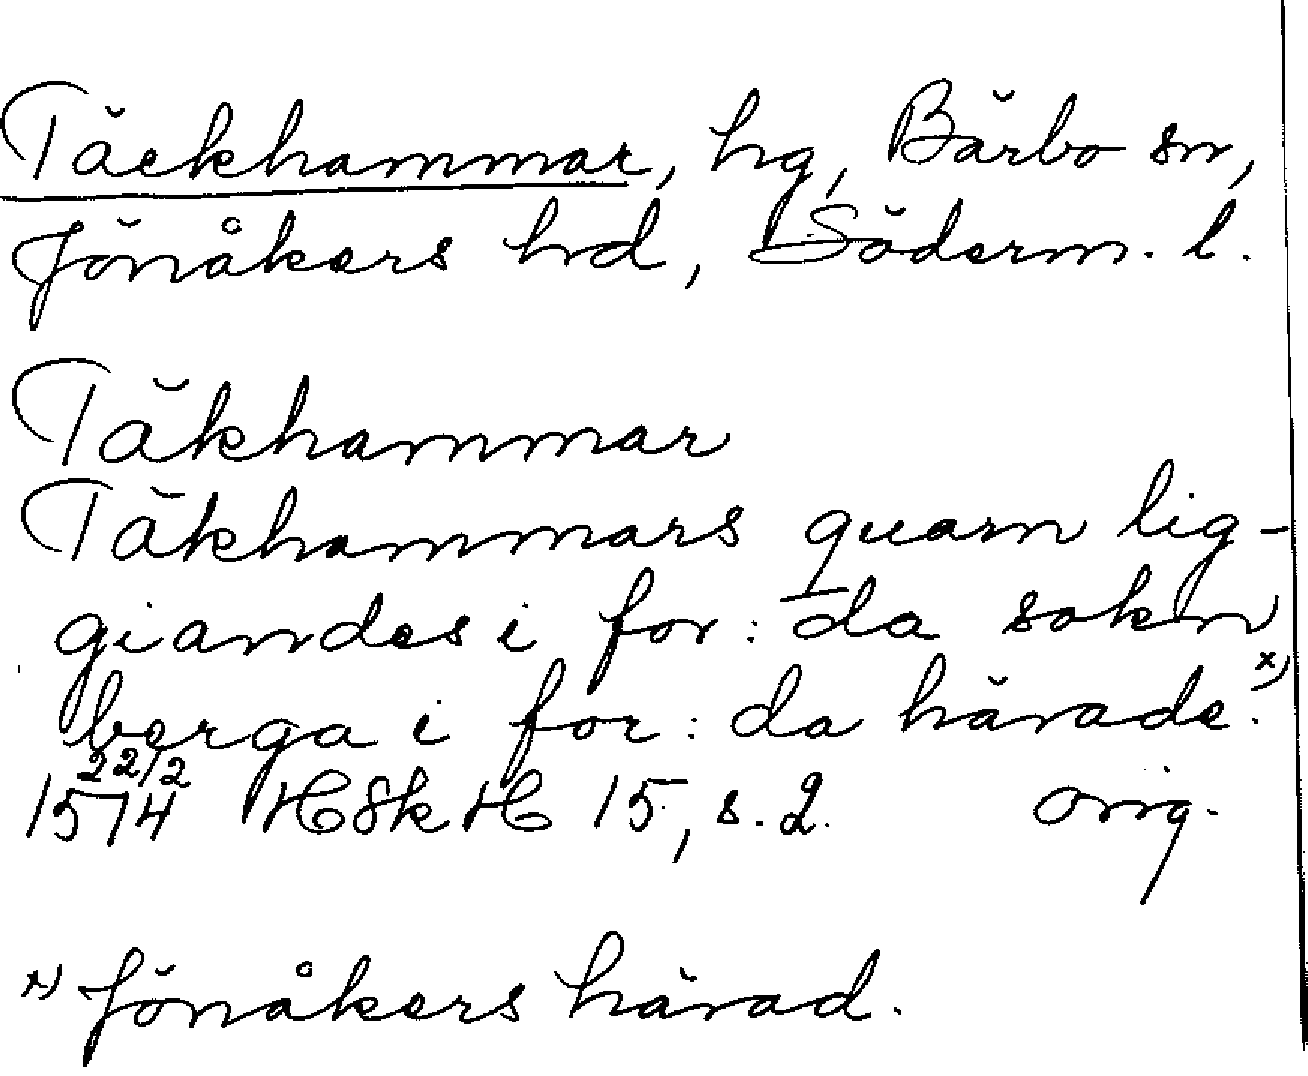 Täckhammar, hg, Bärbo sn,
Jönåkers hd, Söderm. l.
Täkhammar
Täkhammars quarn lig-
giandes i for: da sokn
berga i for: da härade. x)
22/2
1574 HSkH 15, s. 2. orig.
x) Jönåkers härad.